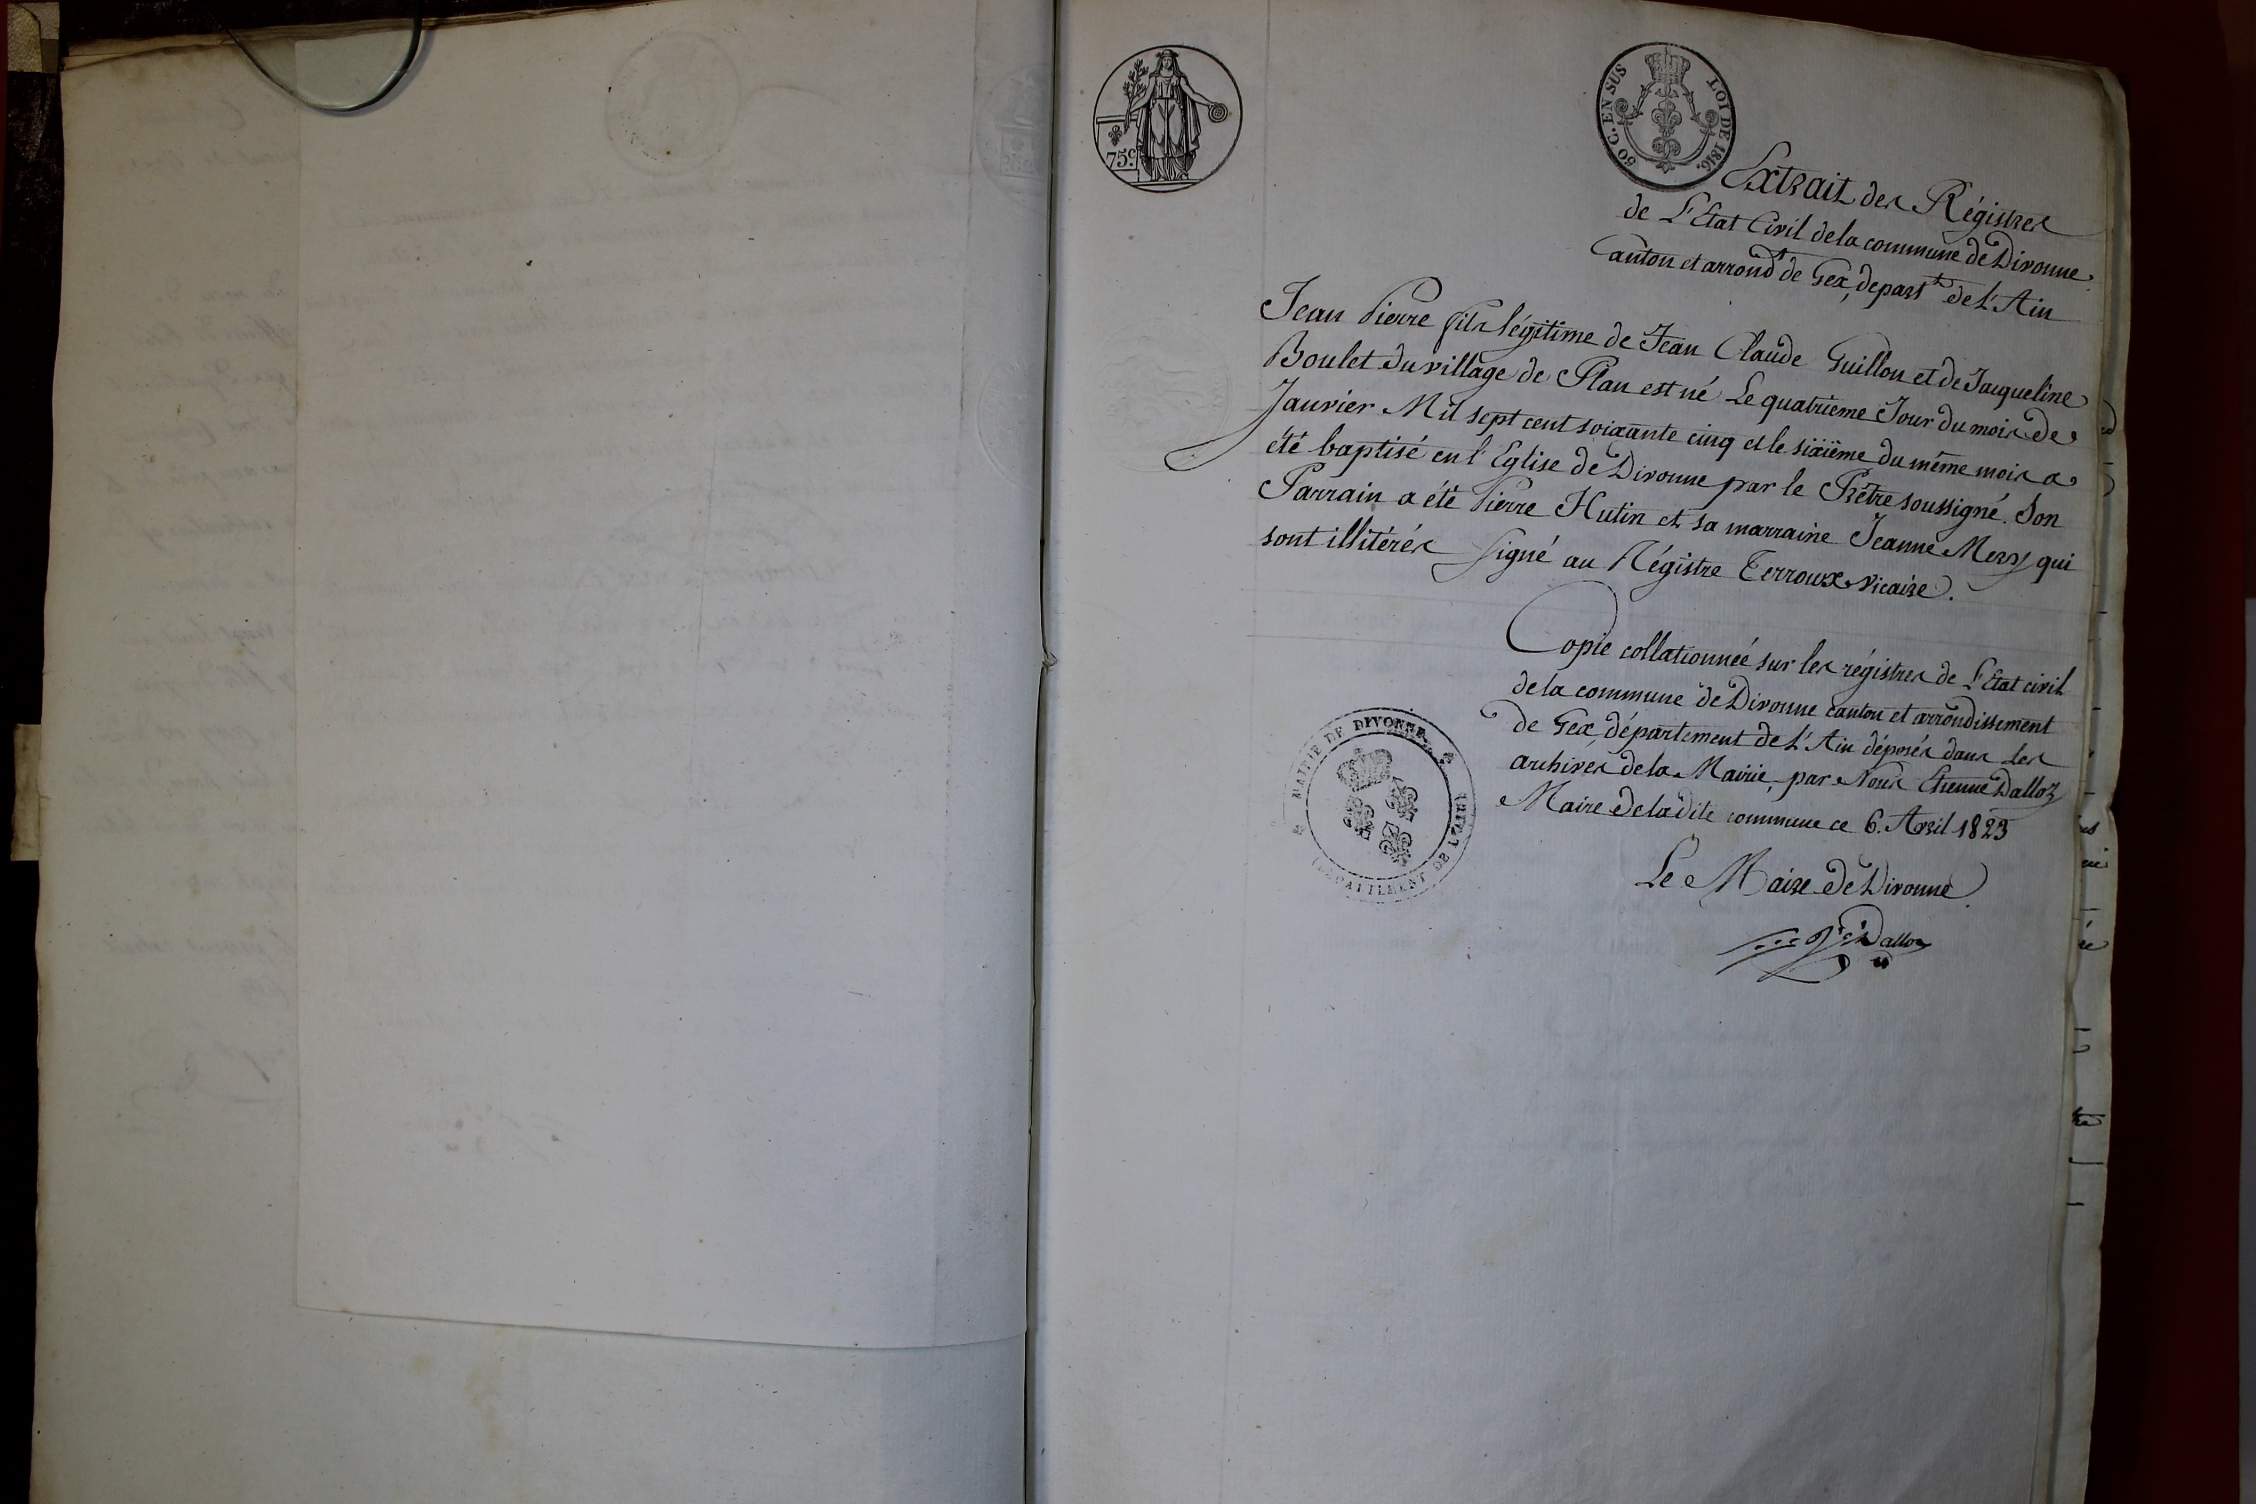 75.c
50 C. EN SUS LOI DE 1816.
Extrait des Régistres
de L'Etat Civil de la commune de Divonne.
Canton et arrond.t de Gex, depart.t de L'Ain
Jean Pierre fils légitime de Jean Claude Guillon et de Jaqueline
Boulet du village de Plan est né Le quatrieme Jour du mois de
Janvier Mil sept cent soixante cinq et le sixiëme du même mois a
été baptisé en l'Eglise de Divonne par le Prêtre soussigné. Son
Parrain a été Pierre Hutin et sa marraine Jeanne Mery qui
sont illitérés signé au Régistre Terroux vicaire.
Copie collationnée sur les régistres de L'Etat civil
de la commune de Divonne canton et arrondissement
de Gex, département de L'Ain déposés dans les
archives de la Mairie, par Nous Etienne Dalloz
Maire de la dite commune ce 6. Avril 1823
MAIRIE DE DIVONNE
(DEPARTEMENT DE L'AIN)
Le Maire de Divonne
Dalloz